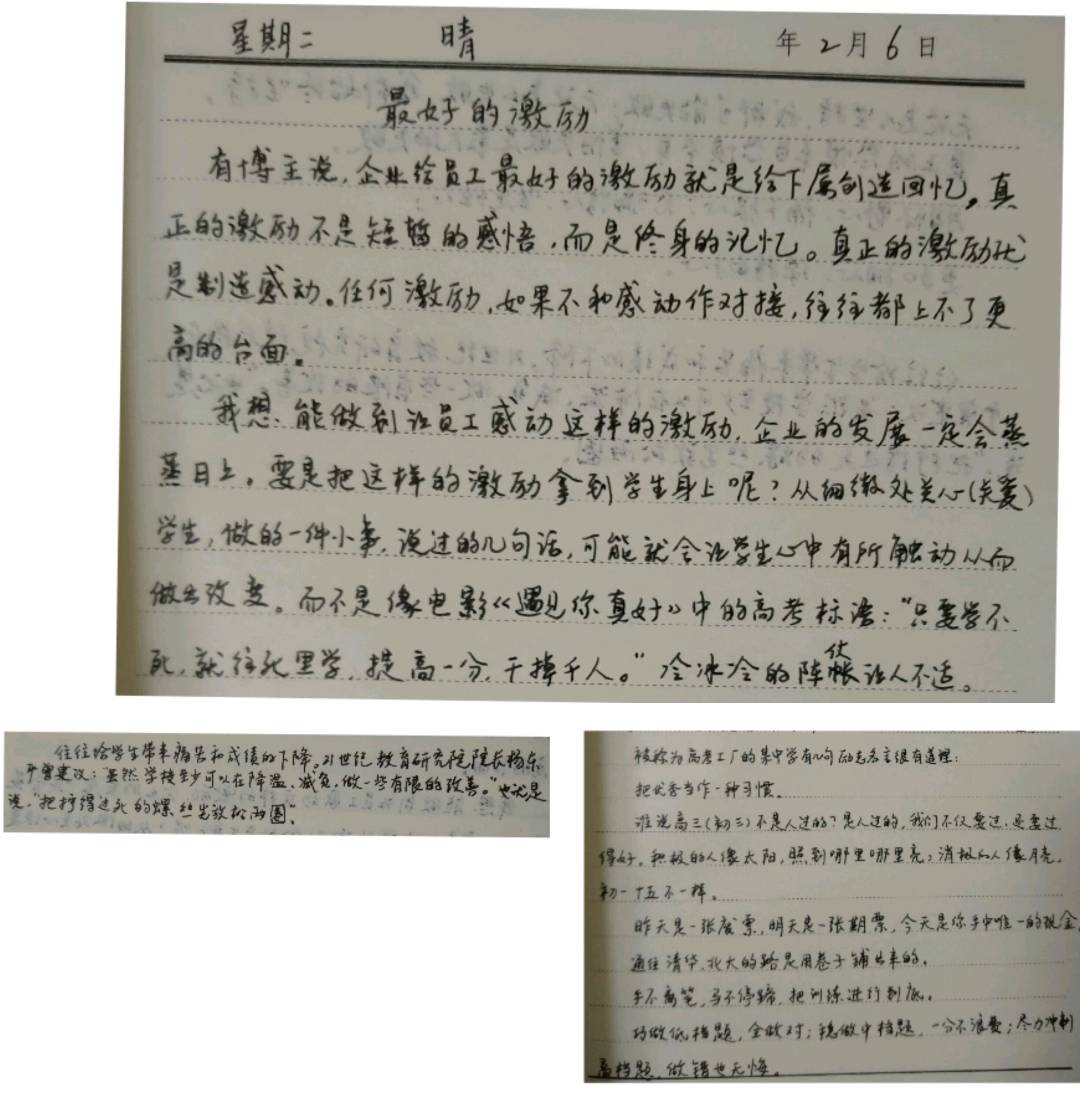 星期二 晴 年2月6日
最好的激励
有博主说,企业给员工最好的激励就是给下属创造回忆。真
正的激励不是短暂的感悟,而是终身的记忆。真正的激励就
是制造感动。任何激励,如果不和感动作对接,往往都上不了更
高的台面。
我想:能做到让员工感动这样的激励,企业的发展一定会蒸
蒸日上。要是把这样的激励拿到学生身上呢?从细微处关心(关爱)
学生,做的一件小事,说过的几句话,可能就会让学生心中有所触动从而
做出改变。而不是像电影《遇见你真好》中的高考标语:“只要学不
死,就往死里学,提高一分,干掉千人。”冷冰冷的阵仗让人不适。
往往给学生带来痛苦和成绩的下降。21世纪教育研究院院长杨东
平曾建议:“虽然学校至少可以在降温、减负,做一些有限的改善。”也就是
说,“把拧得过死的螺丝先放松两圈”。
被称为高考工厂的某中学有几句励志名言很有道理:
把优秀当作一种习惯。
谁说高三(初三)不是人过的?是人过的,我们不仅要过,还要过
得好。积极的人像太阳,照到哪里哪里亮;消极的人像月亮,
初一十五不一样。
昨天是一张废票,明天是一张期票,今天是你手中唯一的现金。
通往清华、北大的路是用卷子铺出来的。
手不离笔,马不停蹄,把训练进行到底。
巧做低档题,全做对;稳做中档题,一分不浪费;尽力冲刺
高档题,做错也无悔。